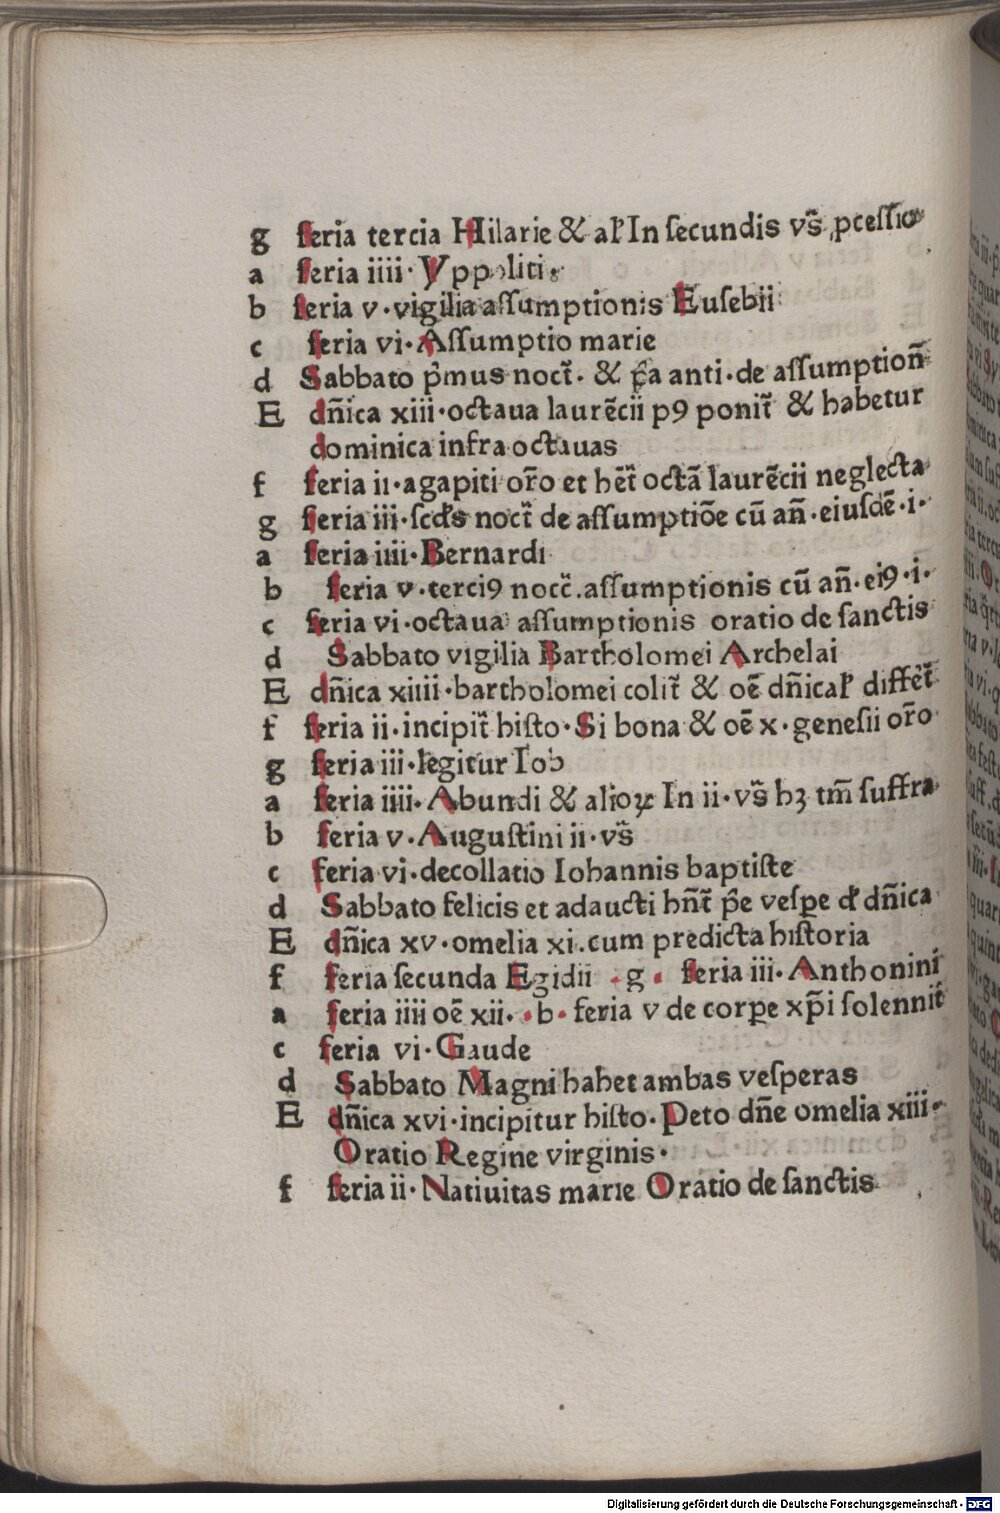 g ſeria tercia Hilarie & al' In ſecundis vs̃ ꝓceſſio
a ſeria iiii· Yppoliti·
b ſeria v·vigilia aſſumptionis Euſebii
c ſeria vi·Aſſumptio marie
d Sabbato p̃mus noct̃· & p̃a anti·de aſſumption̄
E dñica xiii·octaua laurēcii p9 ponit̃ & habetur
dominica infra octauas
f feria ii·agapiti or̄o et hēt̃ octā laurēcii neglecta
g ſeria iii·ſcd's noct̃ de aſſumptiōe cū an̄·eiuſdē·i·
a feria iiii·Bernardi
b feria v·terci9 nocc̃.aſſumptionis cū an̄·ei9·i·
c ſeria vi·octaua aſſumptionis oratio de ſanctis
d Sabbato vigilia Bartholomei Archelai
E dñica xiiii·bartholomei colit̃ & oē dñical' differ̃t
f ſeria ii·incipit̃ hiſto·Si bona & oē x·geneſii or̄o
g ſeria iii·legitur Iob
a ſeria iiii·Abundi & alioꝝ In ii·vs̃ hꝫ tm̄ ſuffra
b feria v·Auguſtini ii·vs̃
c feria vi·decollatio Iohannis baptiſte
d Sabbato felicis et adaucti hn̄t p̃e veſꝑe d' dñica
E dñica xv·omelia xi.cum predicta hiſtoria
f feria ſecunda Egidii ·g· ſeria iii·Anthonini
a feria iiii oē xii· ·b· feria v de corꝑe xp̄i ſolennit̃
c feria vi·Gaude
d Sabbato Magni habet ambas veſperas
E dñica xvi·incipitur hiſto·Peto dn̄e omelia xiii·
Oratio Regine virginis·
f feria ii·Natiuitas marie Oratio de ſanctis
Digitalisierung gefördert durch die Deutsche Forschungsgemeinschaft - DFG